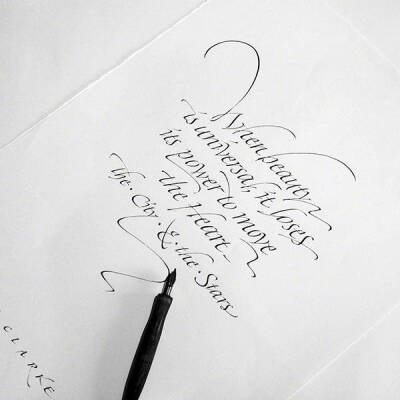 When beauty
is universal, it loses
its power to move
the Heart -
the · City · & · the · Stars
CLARKE